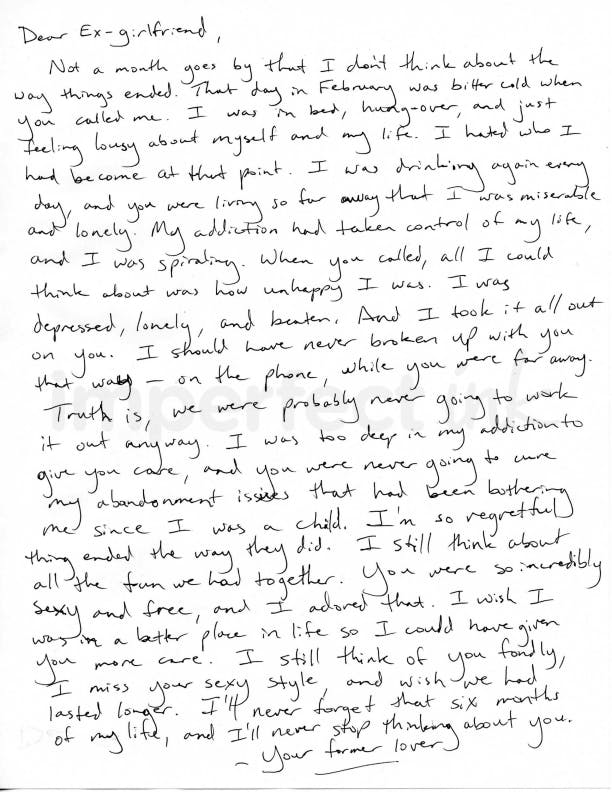 Dear Ex-girlfriend,
Not a month goes by that I don't think about the
way things ended. That day in February was bitter cold when
you called me. I was in bed, hung-over, and just
feeling lousy about myself and my life. I hated who I
had become at that point. I was drinking again every
day, and you were living so far away that I was miserable
and lonely. My addiction had taken control of my life,
and I was spiraling. When you called, all I could
think about was how unhappy I was. I was
depressed, lonely, and beaten. And I took it all out
on you. I should have never broken up with you
that way – on the phone, while you were far away.
Truth is, we were probably never going to work
it out anyway. I was too deep in my addiction to
give you care, and you were never going to cure
my abandonment issues that had been bothering
me since I was a child. I'm so regretful
thing ended the way they did. I still think about
all the fun we had together. You were so incredibly
sexy and free, and I adored that. I wish I
was in a better place in life so I could have given
you more care. I still think of you fondly,
I miss your sexy style, and wish we had
lasted longer. I'll never forget that six months
of my life, and I'll never stop thinking about you.
- Your former lover
imperfect ink